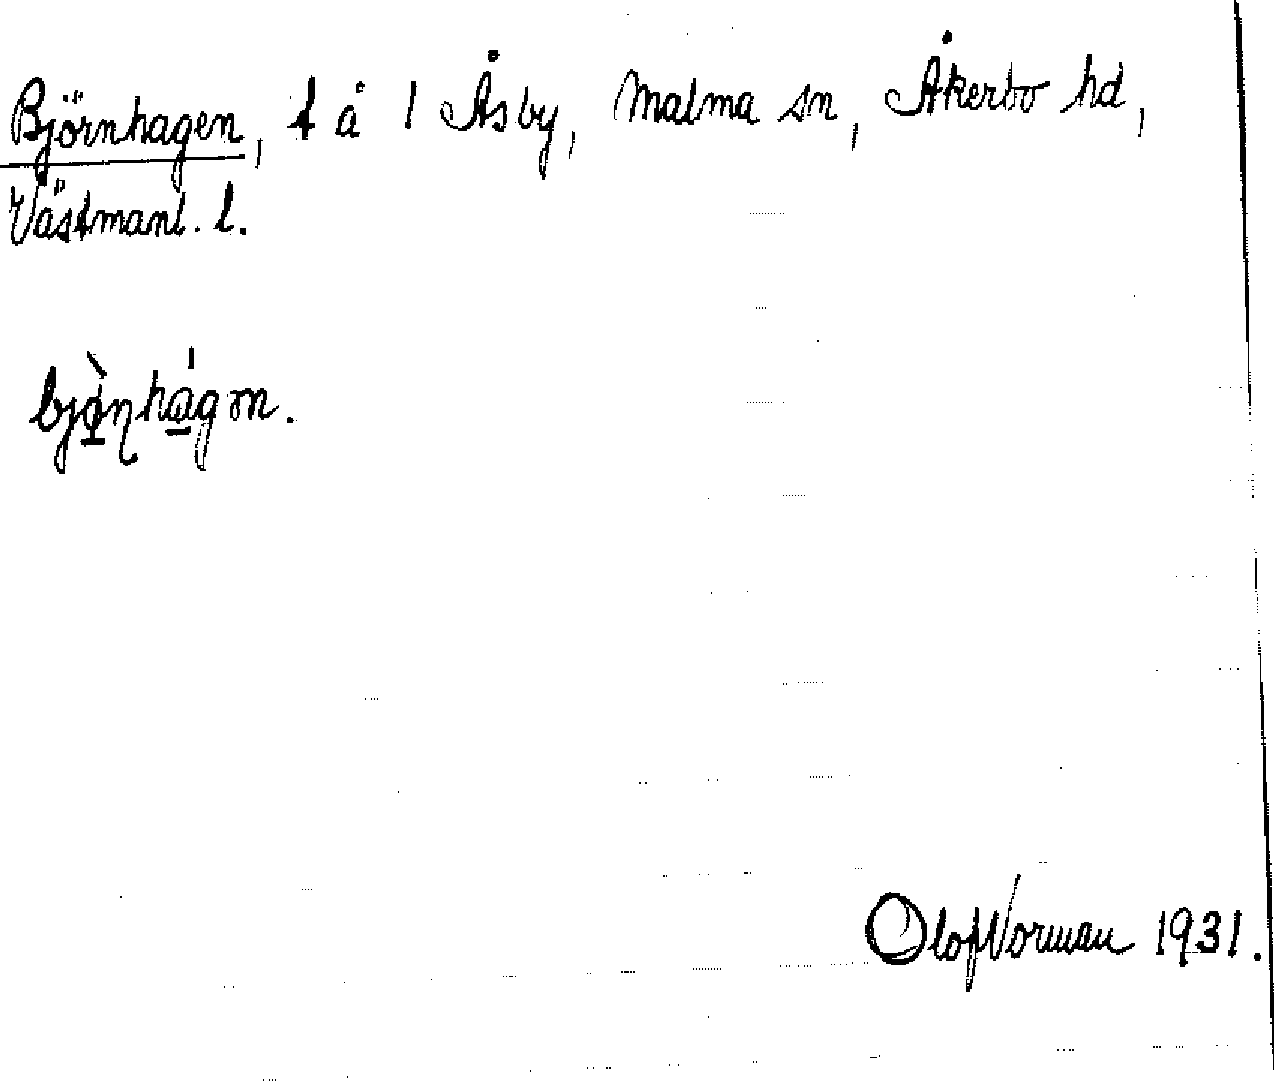 Björnhagen, t å 1 Åsby, Malma sn, Åkerbo hd,
Västmanl. l.
Olof Norman 1931.